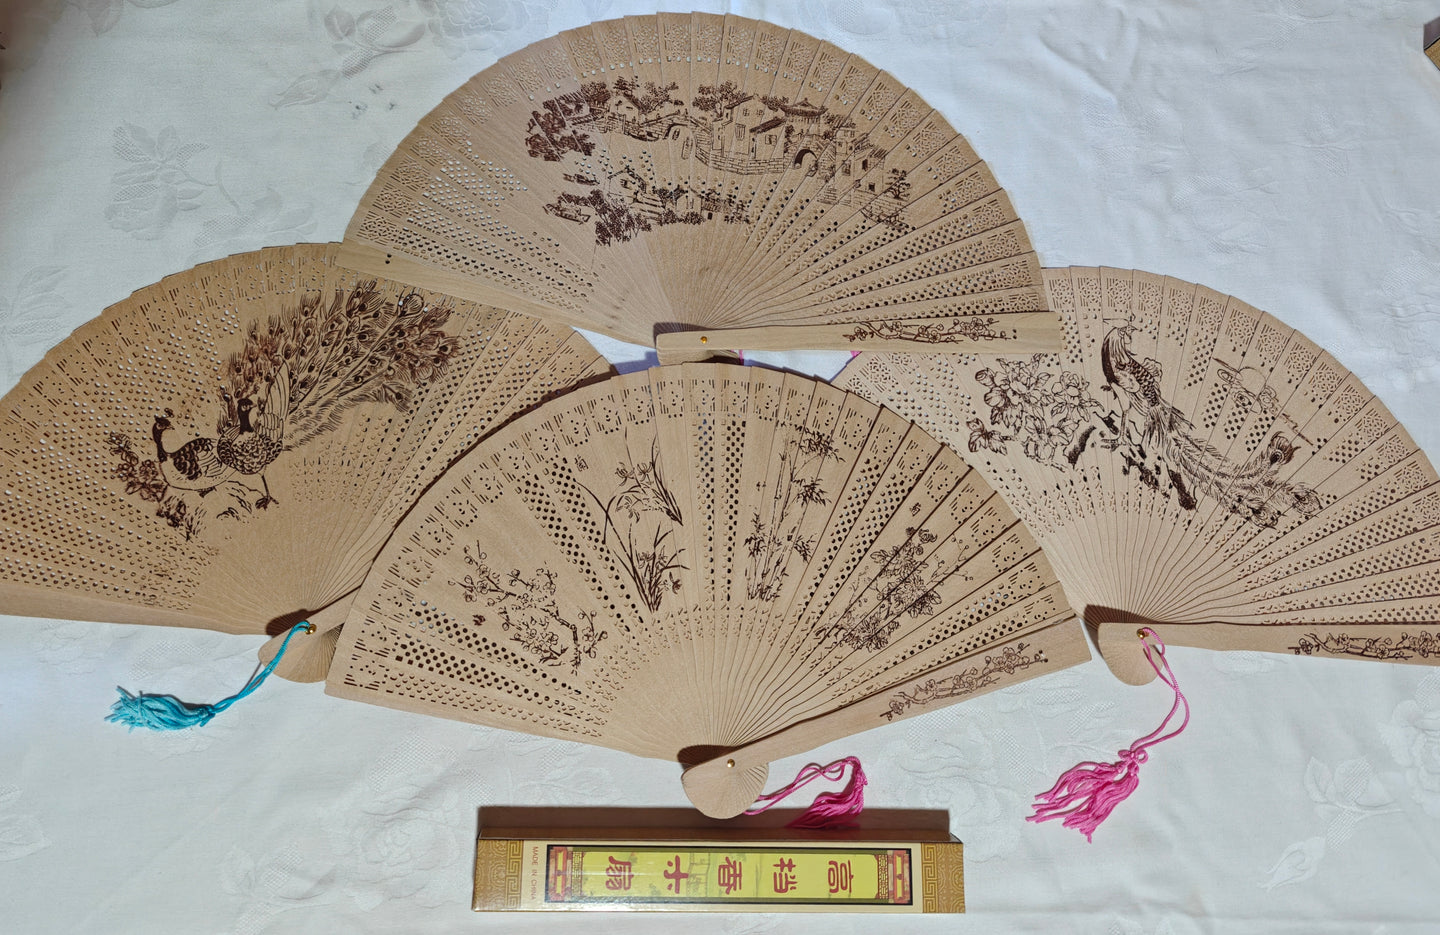 高档香木扇
MADE IN CHINA